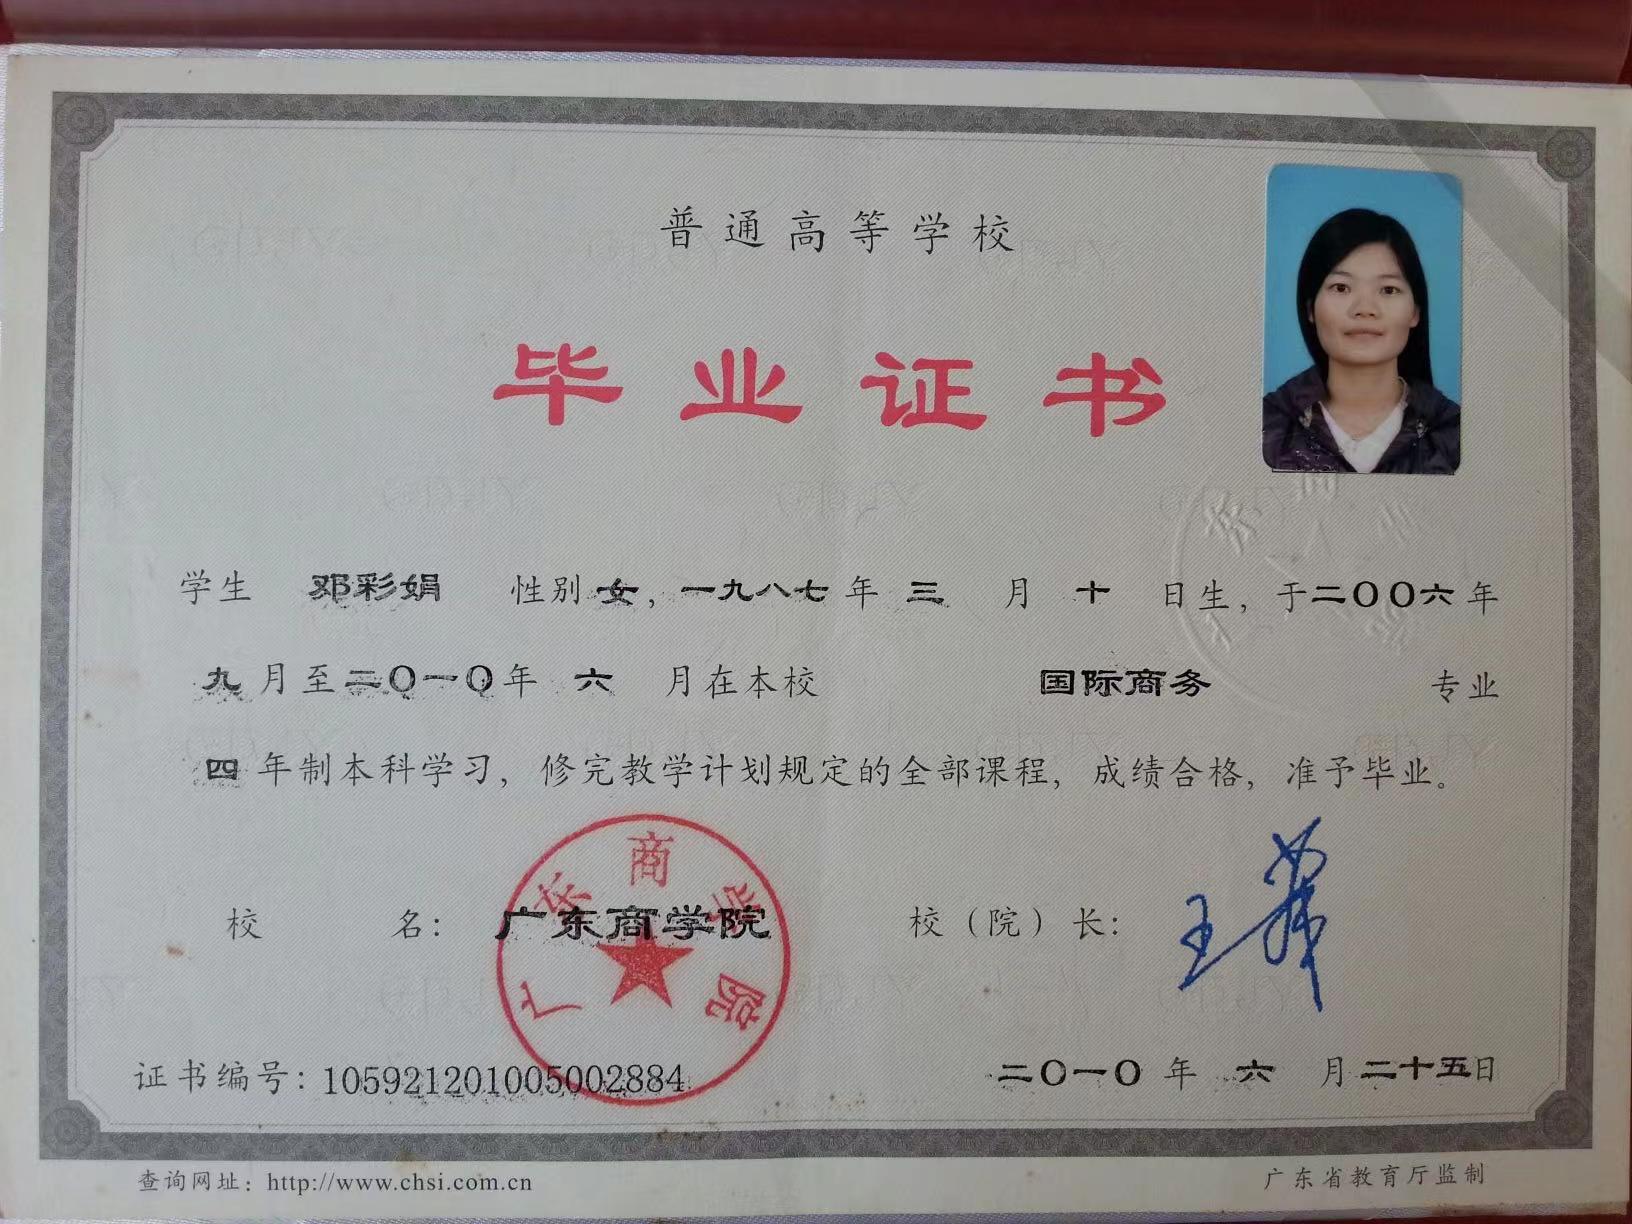 普通高等学校
毕业证书
学生 邓彩娟 性别 女，一九八七年 三 月 十 日生，于二〇〇六年
九月至二〇一〇年 六 月在本校 国际商务 专业
四年制本科学习，修完教学计划规定的全部课程，成绩合格，准予毕业。
校 名：广东商学院 校（院）长：
广东商学院
证书编号：105921201005002884 二〇一〇年 六 月二十五日
查询网址：http://www.chsi.com.cn 广东省教育厅监制